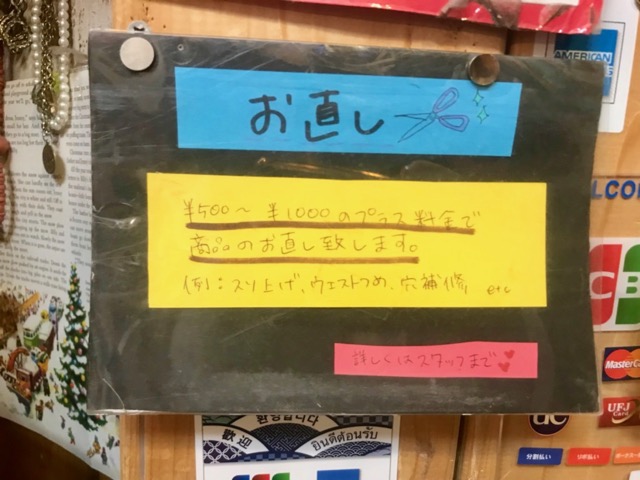 お直し
¥500～¥1000のプラス料金で
商品のお直し致します。
例：スソ上げ、ウエストつめ、穴補修、etc
詳しくはスタッフまで
AMERICAN
JCB
MasterCard
UFJ Card
UC
分割払い
リボ払い
환영합니다
歓迎
ยินดีต้อนรับ